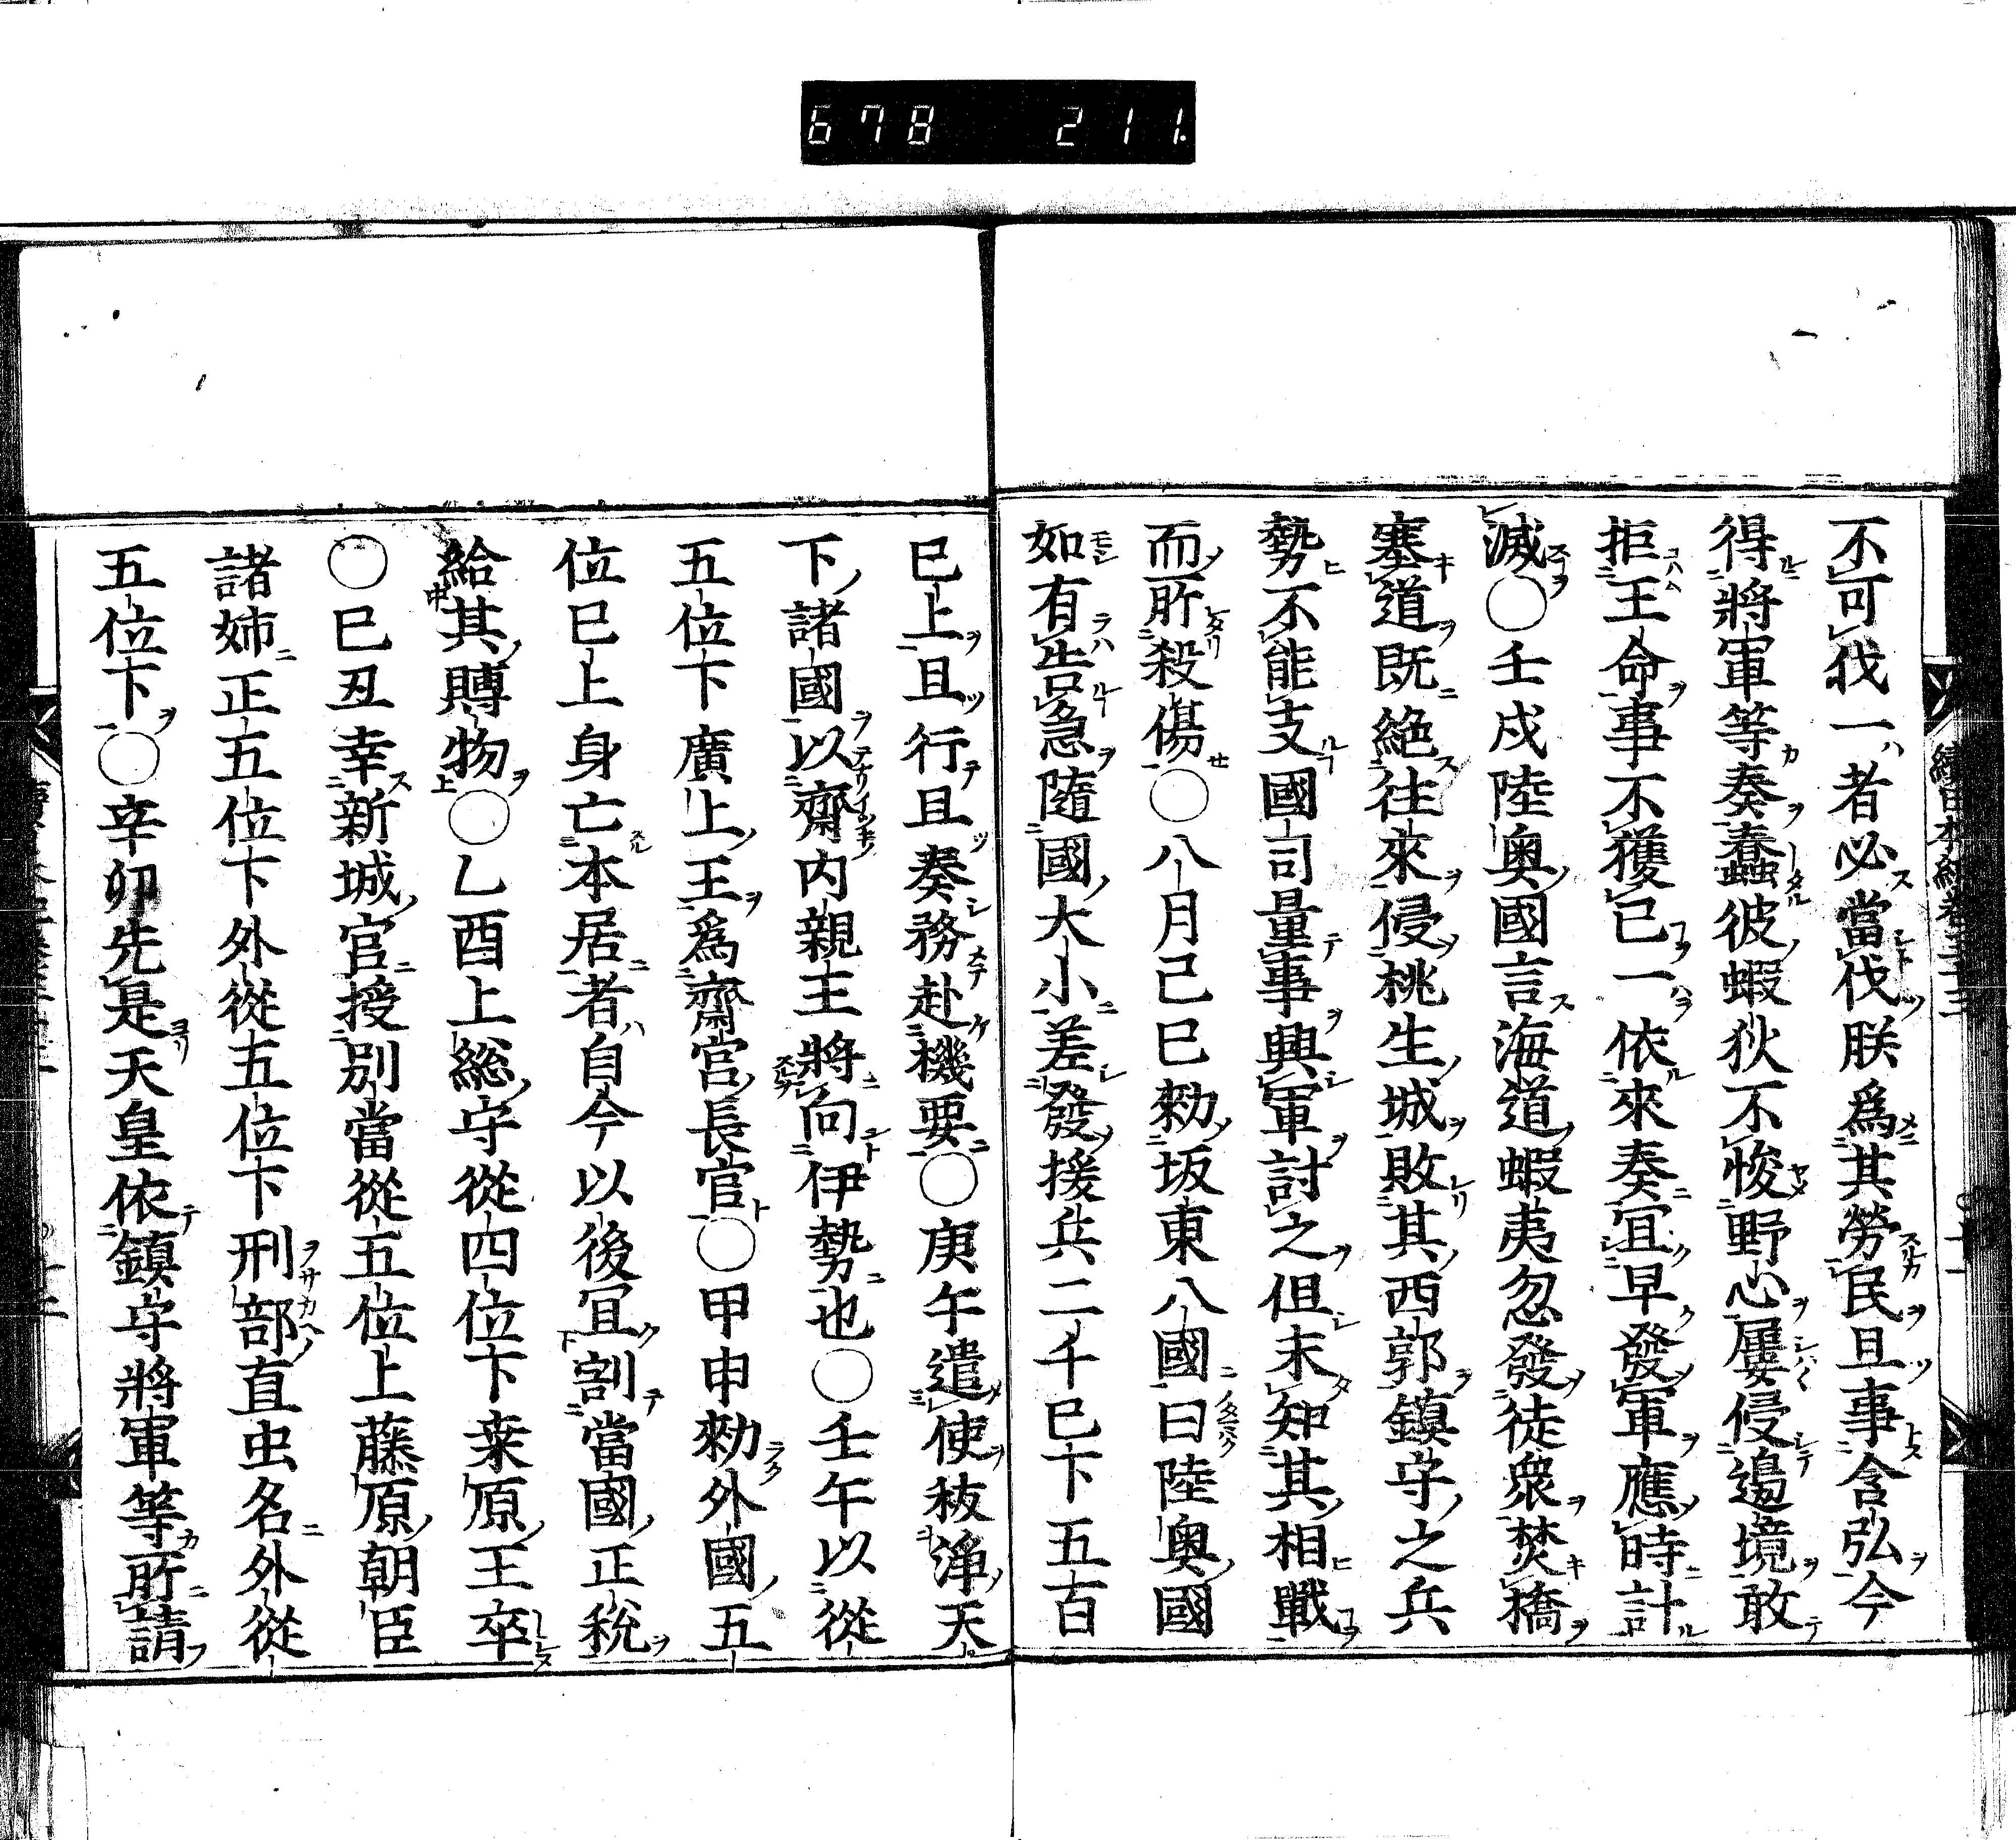 678 211
不可伐一者必當伐朕爲其勞民且事含弘今
得將軍等奏蠢彼蝦狄不悛野心屢侵邊境敢
拒王命事不獲已一依來奏宜早發軍應時計
滅○壬戌陸奥國言海道蝦夷忽發徒衆焚橋
塞道既絶往來侵桃生城敗其西郭鎮守之兵
勢不能支國司量事興軍討之但未知其相戰
而所殺傷○八月己巳勅坂東八國曰陸奥國
如有告急隨國大小差發援兵二千已下五百
已上且行且奏務赴機要○庚午遣使祓淨天
下諸國以齋内親王將向伊勢也○壬午以從
五位下廣上王爲齋宮長官○甲申勅外國五
位已上身亡本居者自今以後宜割當國正税
給其賻物○乙酉上総守從四位下桒原王卒
○己丑幸新城官授別當從五位上藤原朝臣
諸姉正五位下外從五位下刑部直虫名外從
五位下○辛卯先是天皇依鎮守將軍等所請